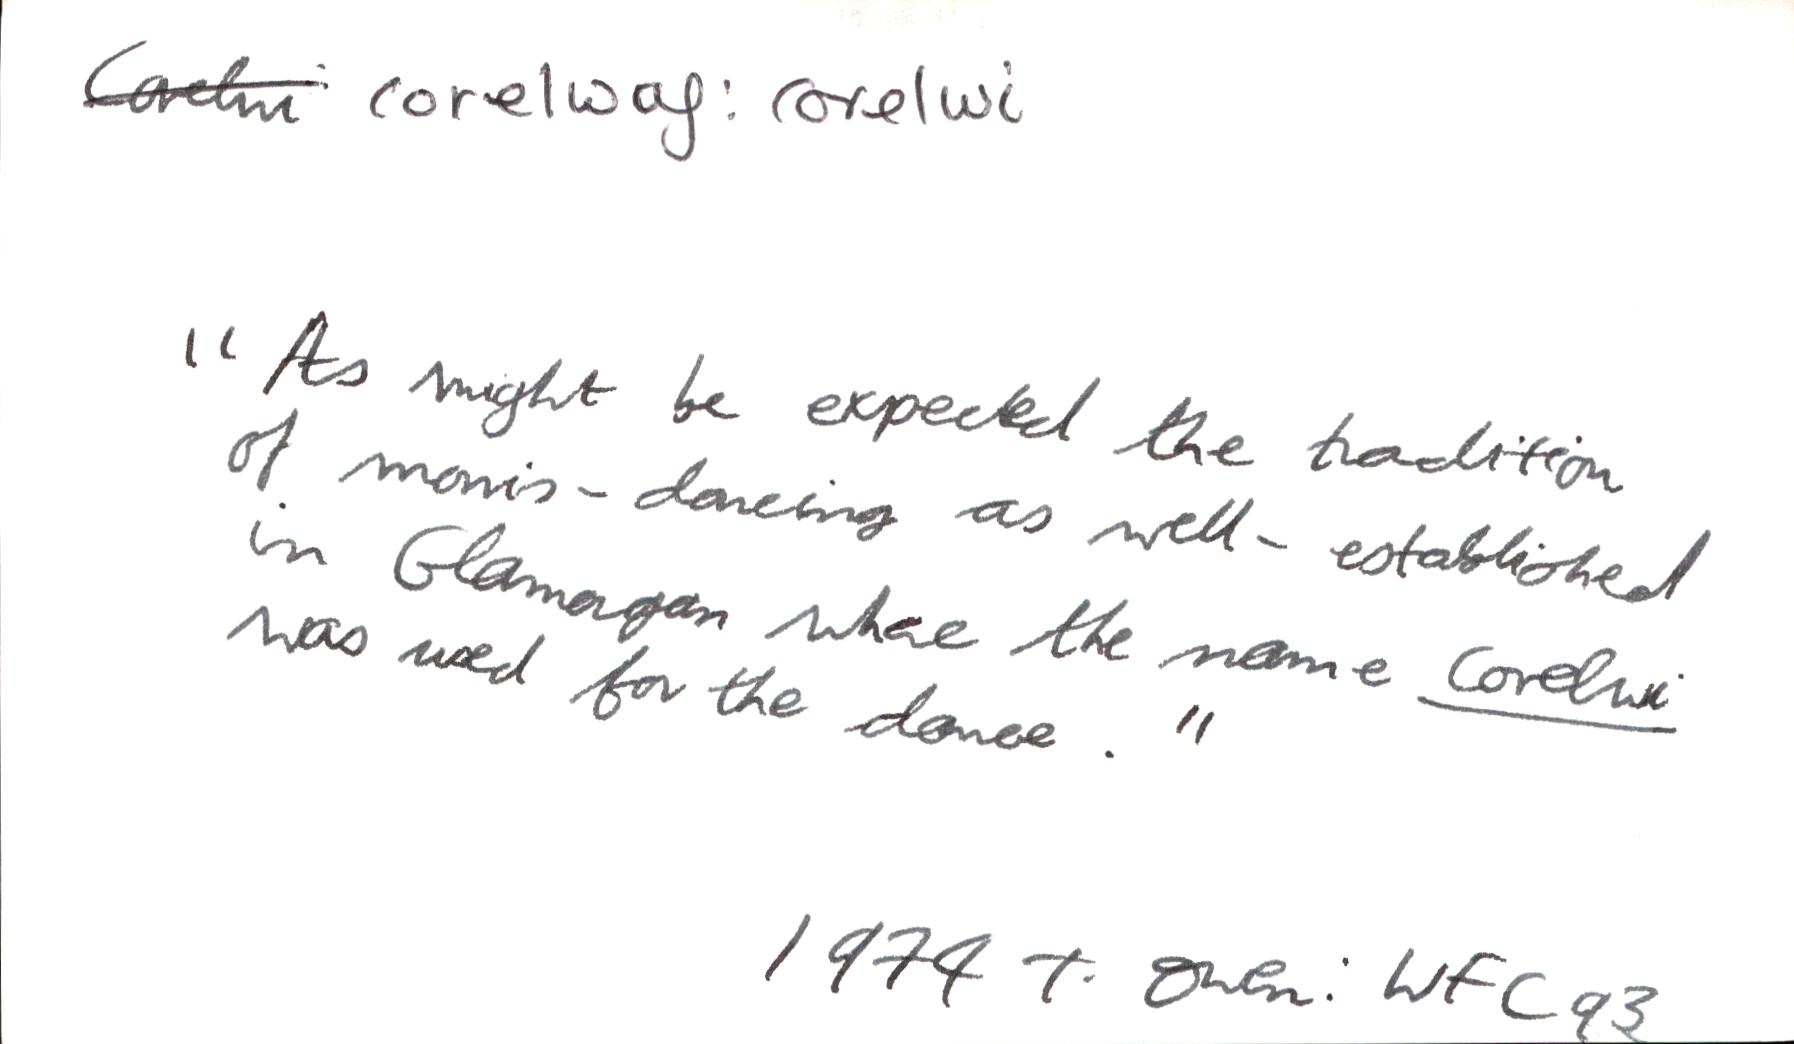 Corelwi corelwaf: corelwi
"As might be expected the tradition
of morris-dancing as well-established
in Glamorgan where the name Corelwi
was used for the dance."
1974 T. Owen: WFC 93